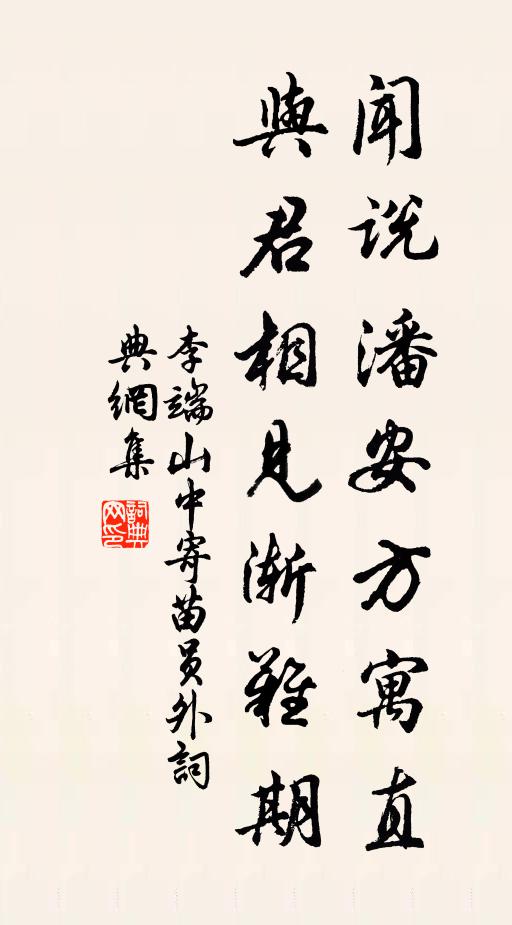 闻说潘安方寓直
與君相见渐難期
李端山中寄苗员外詞
典網集
詞典網印